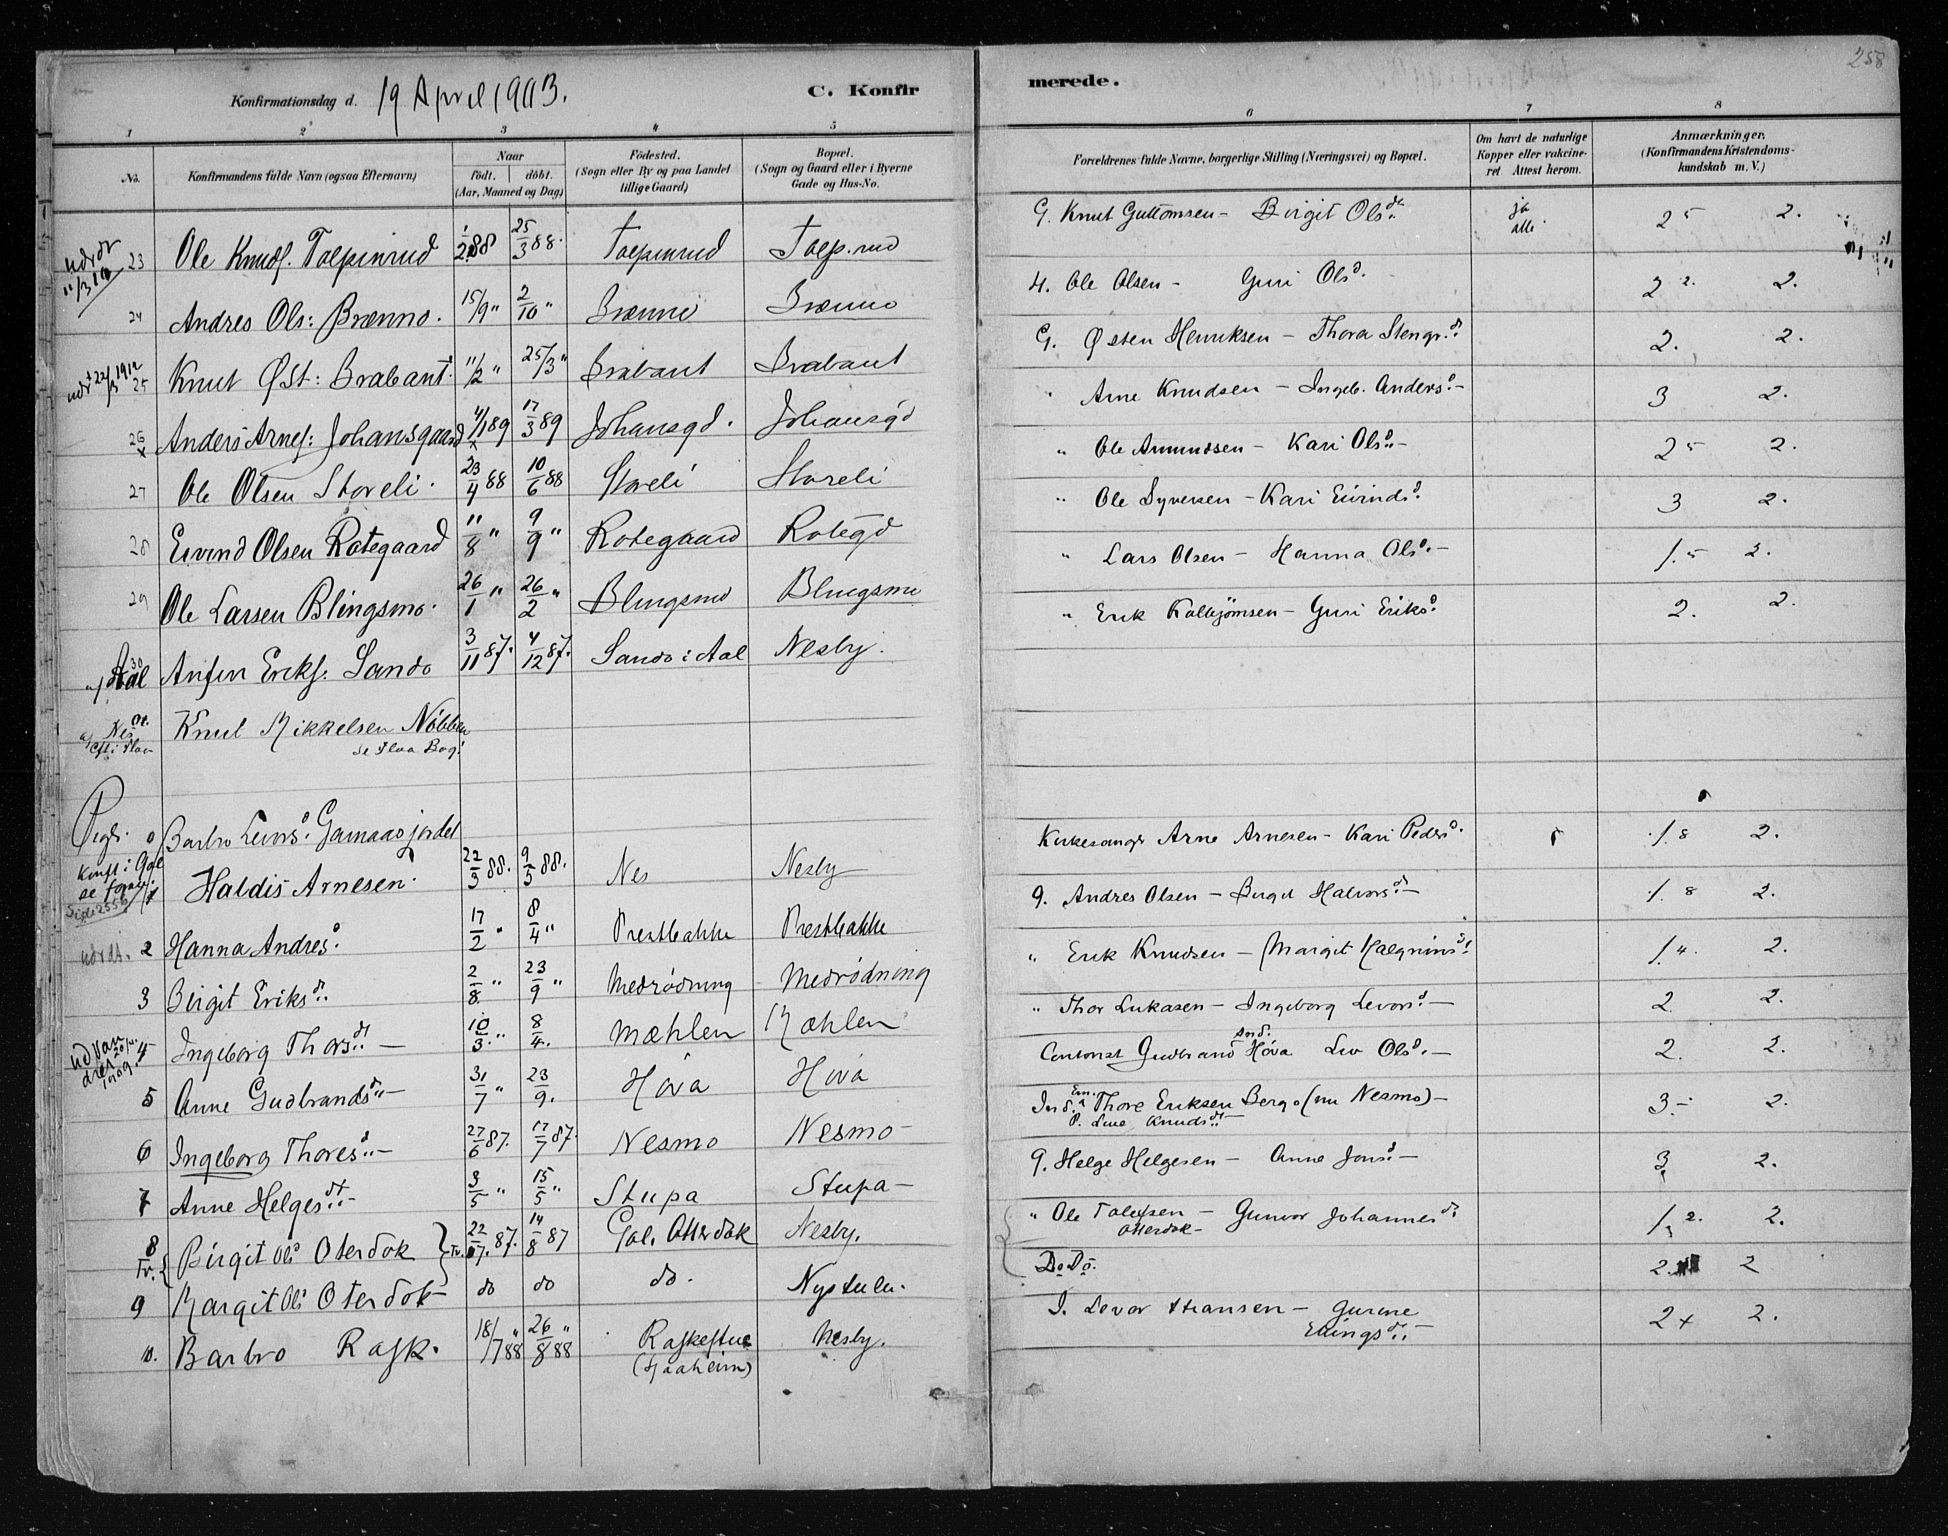 258
Konfirmationsdag d. 19 April 1903. C. Konfirmerede.
1 2 3 4 5 6 7 8
No. Konfirmandens fulde Navn (ogsaa Efternavn) Naar født. døbt. (Aar, Maaned og Dag) Fødested. (Sogn eller By og paa Landet tillige Gaard) Bopæl. (Sogn og Gaard eller i Byerne Gade og Hus-No. Forældrenes fulde Navne, borgerlige Stilling (Næringsvei) og Bopæl. Om havt de naturlige Kopper eller vakcineret Attest herom. Anmærkninger. (Konfirmandens Kristendomskundskab m. V.)
23 Ole Knuds. Tolpinrud 1/2 88 25/3 88. Tolpinrud Tolp.rud G. Knut Guttomsen - Birgit Olsdt. ja alle 2 5 2.
24 Andres Ols: Brænno. 15/9 " 2/10 " Brænno Brænno 4. Ole Olsen - Guri Olsd. 2 2. 2.
udr 22/3 1912 25 Knut Øst: Brabant. 11/2 " 25/3 " Brabant Brabant G. Østen Henriksen - Thora Stengr.d. 2. 2.
26 Anders Arnes: Johansgaard 4/1 89 17/3 89 Johansgd. Johansgd " Arne Knudsen - Ingeb. Andersd. - 3 2.
27 Ole Olsen Storeli. 23/4 88 10/6 88 Storeli Storeli " Ole Amundsen - Kari Olsd. - 2 5 2.
28 Eivind Olsen Rotegaard 11/8 " 9/9 " Rotegaard Rotegd " Ole Syversen - Kari Eivindsd. 3 2.
29 Ole Larsen Blingsmo. 26/1 " 26/2 " Blingsmo Blingsmo " Lars Olsen - Hanna Olsd. - 1.5 2.
30 Aal Anfin Eriks. Sando 3/11 87. 4/12 87. Sando i Aal Nesby. " Erik Kolbjømsen - Guri Eriksd. 2. 2.
Nes Knut Mikkelsen Nøbben
se Flaa Bog!
Piger. 0 Barbro Levorsd. Gamaasjordet
Konft i Gol
se foran.
Side 255b
1 Haldis Arnesen. 22/3 88. 9/5 88. Nes Nesby Kirkesanger Arne Arnesen - Kari Pedersd. 1.8 2.
2 Hanna Andresd. 17/2 " 8/4 " Prestbakke Prestbakke G. Andres Olsen - Birgit Halvorsdt. - 1.8 2.
3 Birgit Eriksdt. 2/8 " 23/9 " Medrødning Medrødning " Erik Knudsen - Margit Halgrimsd. 1.4. 2.
4 Ingeborg Thorsdt. - 10/3 " 8/4. Mæhlen Mæhlen " Thor Lukasen - Ingeborg Levorsd. - 2 2.
5 Anne Gudbrandsdt. - 31/7 " 23/9. Hova Hova Gudbrand And. Hova Liv Olsd. - 2. 2.
6 Ingeborg Thoresd. - 27/6 87. 17/7 87. Nesmo Nesmo - Ind. Em. Thore Eriksen Bergo (nu Nesmo) -
P. Line Knudsdt. - 3. - 2.
7 Anne Helgesdt. 3/5 " 15/5 " Stupa Stupa - G. Helge Helgesen - Anne Jonsd. - 3 2.
8 Tv. Birgit Olsd Oterdok Tv. 22/7. 87. 14/8 87 Gol. Otterdok Nesby. " Ole Tolefsen - Gunvor Johannesd.
Otterdok - 1 2. 2.
9 Margit Olsd Oterdok - do do do. Nystulen. Do Do. 2. 2
10. Barbro Rask. 18/7 88 26/8 88 Raskestue Nesby. I. Levor Hansen - Gurine
(Haaheim) Ellingsdt. - 2 + 2.